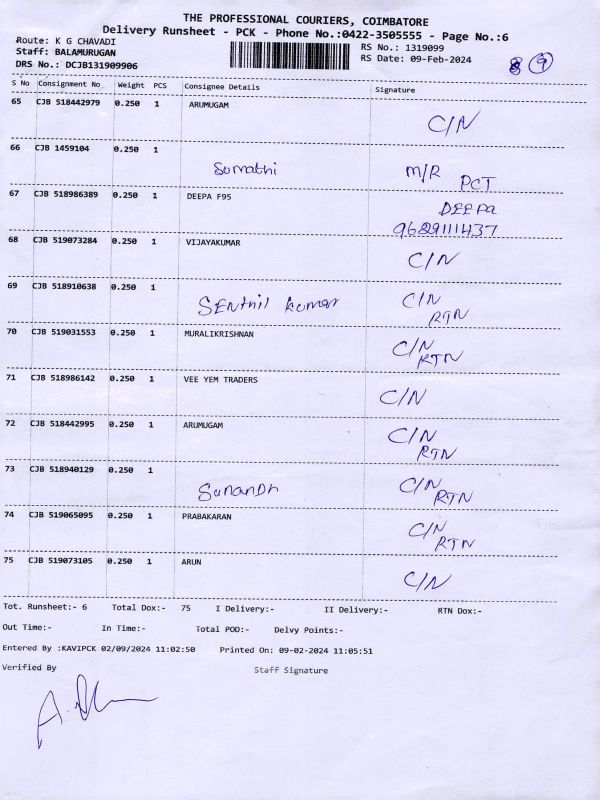 THE PROFESSIONAL COURIERS, COIMBATORE
Delivery Runsheet - PCK - Phone No.:0422-3505555 - Page No.:6
Route: K G CHAVADI
Staff: BALAMURUGAN
DRS No.: DCJB131909906
RS No.: 1319099
RS Date: 09-Feb-2024
8 9
S No Consignment No Weight PCS Consignee Details Signature
65 CJB 518442979 0.250 1 ARUMUGAM C/N
66 CJB 1459104 0.250 1 Sumathi M/R PCT
67 CJB 518986389 0.250 1 DEEPA F95 DEEPA
9629111437
68 CJB 519073284 0.250 1 VIJAYAKUMAR C/N
69 CJB 518910638 0.250 1 SENthil kumar C/N
RTN
70 CJB 519031553 0.250 1 MURALIKRISHNAN C/N
RTN
71 CJB 518986142 0.250 1 VEE YEM TRADERS C/N
72 CJB 518442995 0.250 1 ARUMUGAM C/N
RTN
73 CJB 518940129 0.250 1 Sunandh C/N
RTN
74 CJB 519065095 0.250 1 PRABAKARAN C/N
RTN
75 CJB 519073105 0.250 1 ARUN C/N
Tot. Runsheet:- 6 Total Dox:- 75 I Delivery:- II Delivery:- RTN Dox:-
Out Time:- In Time:- Total POD:- Delvy Points:-
Entered By :KAVIPCK 02/09/2024 11:02:50 Printed On: 09-02-2024 11:05:51
Verified By Staff Signature